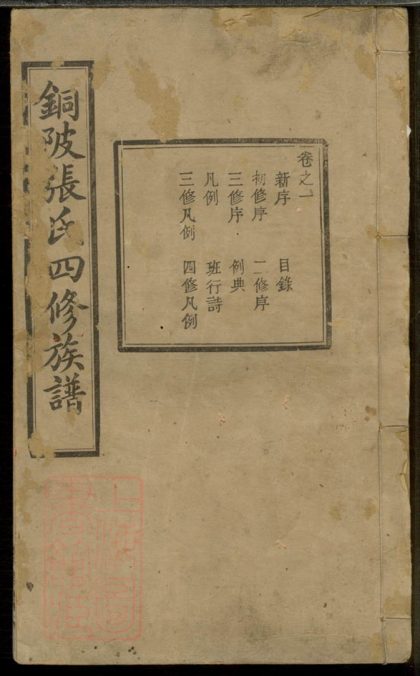 銅陂張氏四修族譜
卷之一
新序 目錄
初修序 二修序
三修序 例典
凡例 班行詩
三修凡例 四修凡例